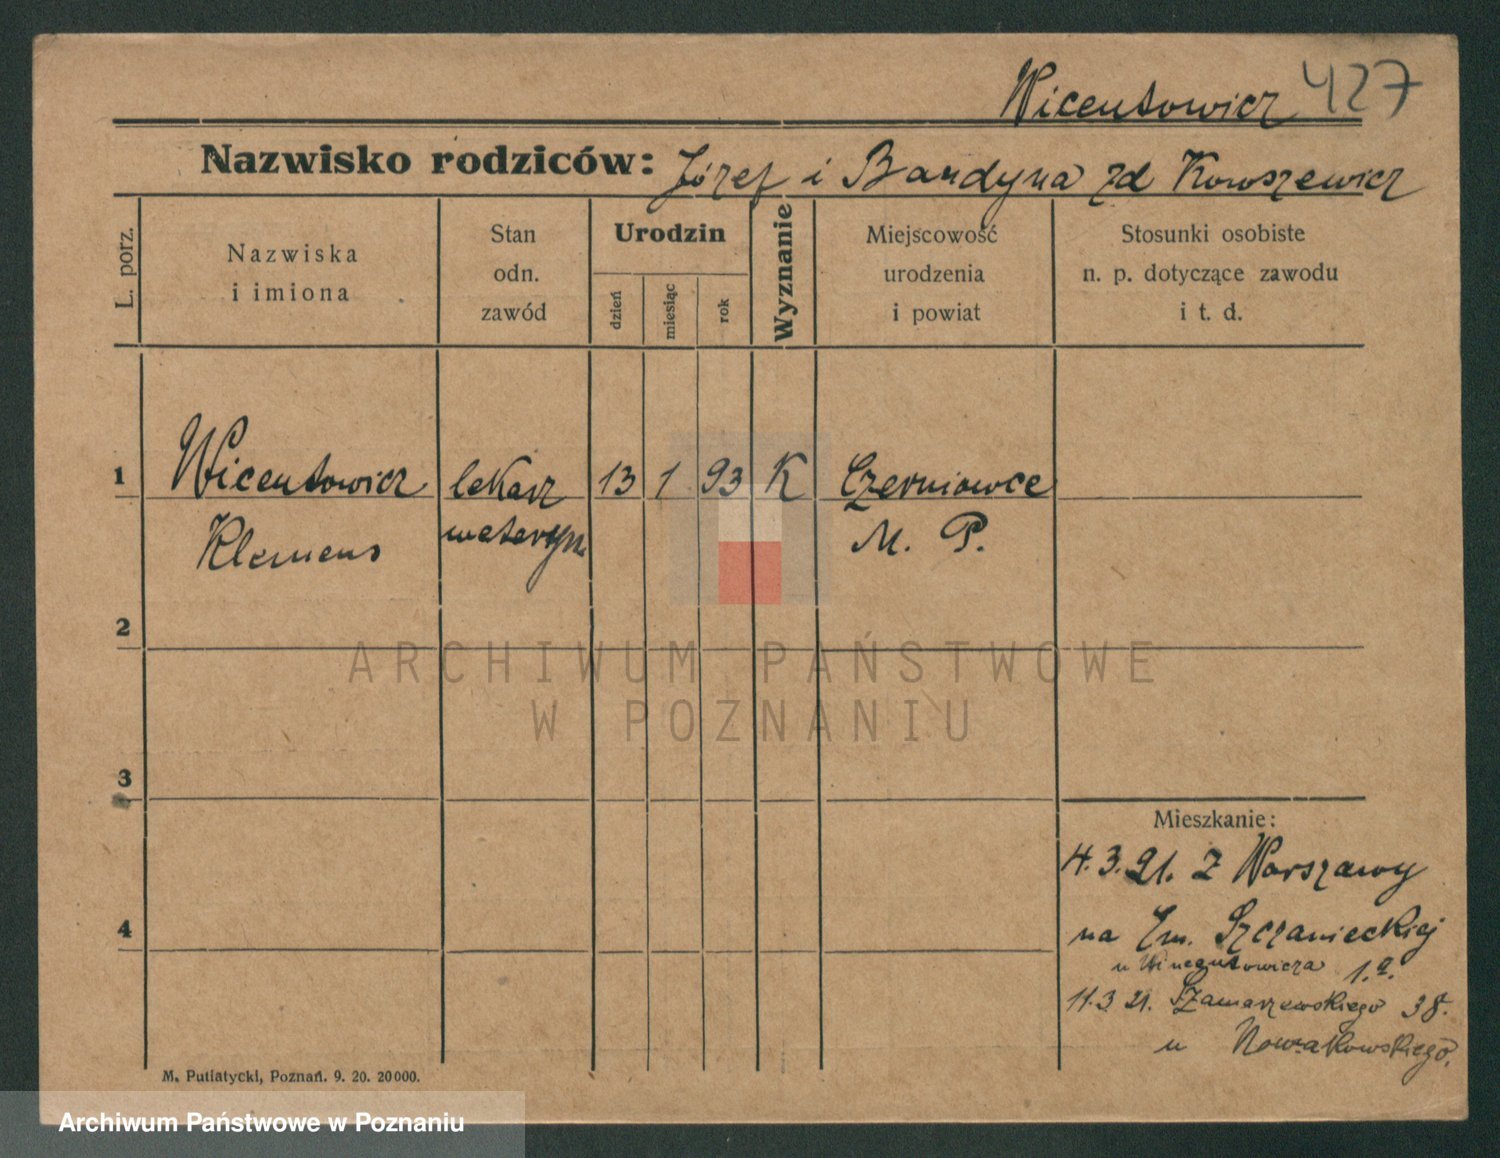 Wicentowicz 427
Nazwisko rodziców: Józef i Bandyna zd Kowszewicz
L. porz.
Nazwiska
i imiona
Stan
odn.
zawód
Urodzin
dzień
miesiąc
rok
Wyznanie
Miejscowość
urodzenia
i powiat
Stosunki osobiste
n. p. dotyczące zawodu
i t. d.
1 Wicentowicz lekarz 13 1 93 K Czerniowce
Klemens weteryn. M. P.
2
ARCHIWUM PAŃSTWOWE
W POZNANIU
3
Mieszkanie:
4.3.21. Z Warszawy
4
na Em. Szczanieckiej
u 1a.
11.3 21. Szamarzewskiego 38.
u Nowakowskiego.
M. Putiatycki, Poznań. 9. 20. 20000.
Archiwum Państwowe w Poznaniu